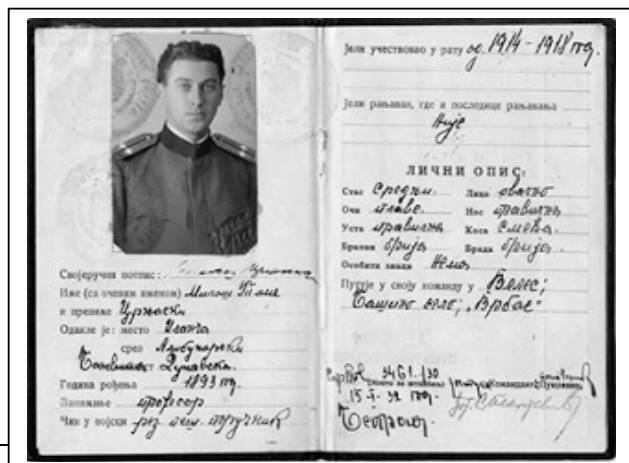 Својеручни потпис:
Име (са очевим именом) Милош Томе
и презиме Црњански
Одакле је: место Иланча
срез Алибунарски
Бановина: Дунавска.
Година рођења 1893 год.
Занимање професор
Чин у војсци рез. пеш. поручник
Јели учествовао у рату од 1914 - 1918 год.
Јели рањаван, где и последице рањавања
Није
ЛИЧНИ ОПИС:
Стас Средњи. Лице овално
Очи плаве. Нос правилан
Уста правилна Коса Смеђа.
Бркови брија Брада брија.
Особити знаци Нема
Путује у своју команду у Велес;
Башино село; „Врбас“
346 /30
15 32 год.
Београд.